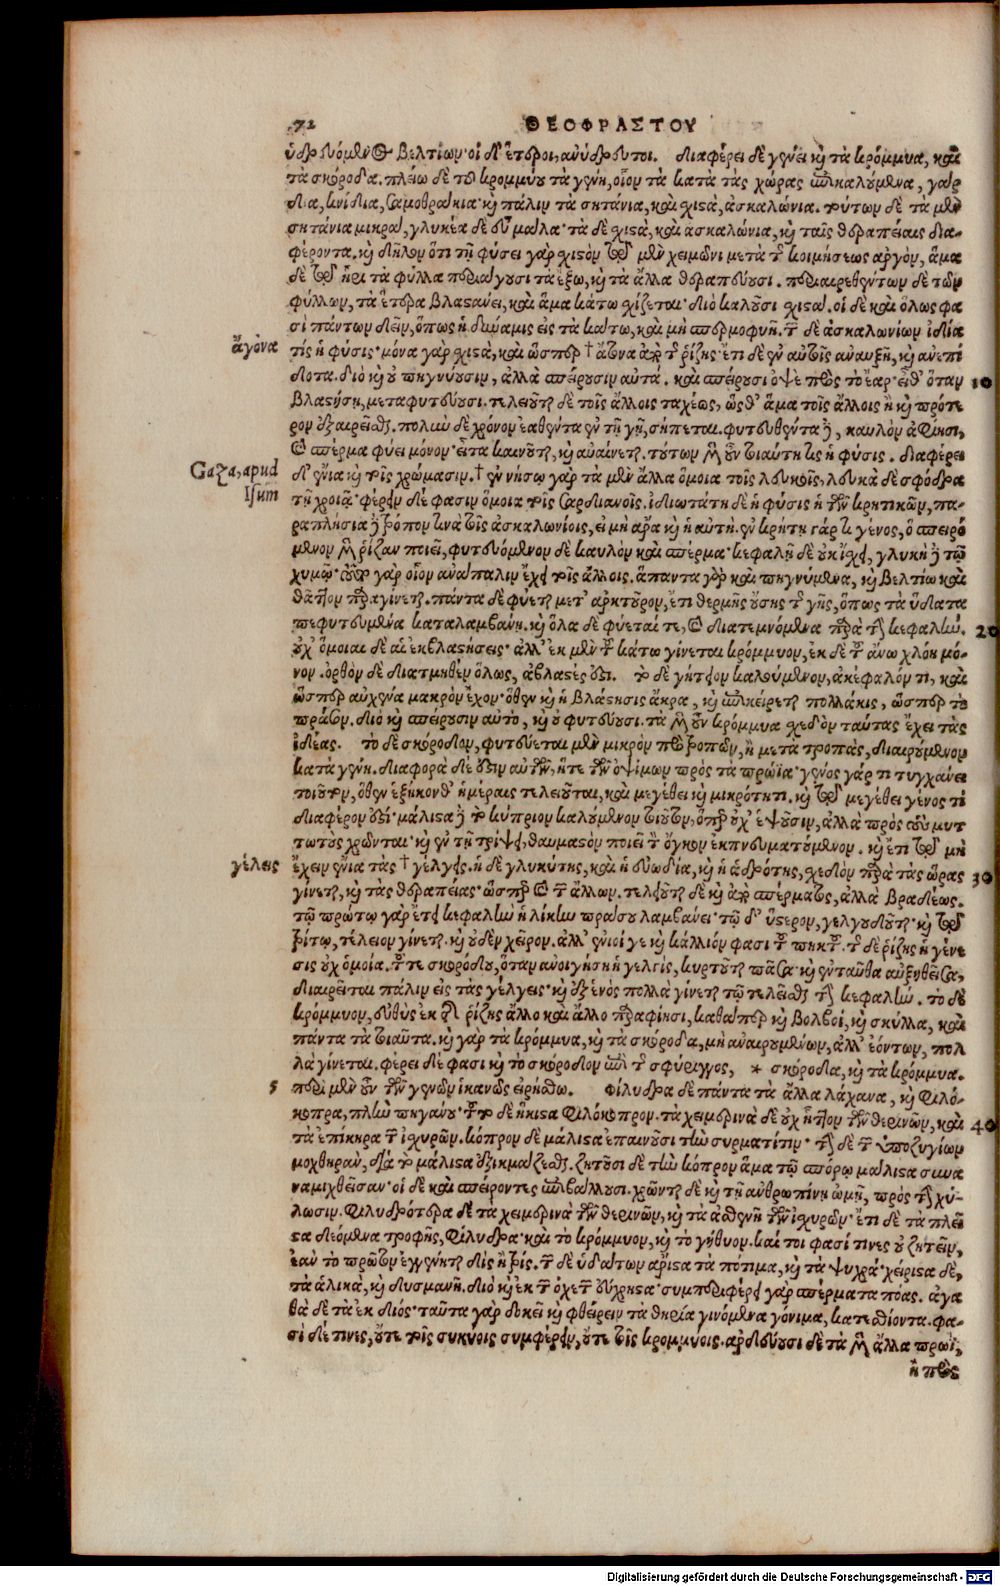 72
ΘΕΟΦΡΑΣΤΟΥ
ὑδρευόμενος βελτίων· οἱ δ' ἕτεροι, ἀνύδρευτοι. διαφέρει δὲ γένει καὶ τὰ κρόμμυα, καὶ
τὰ σκόροδα. πλείω δὲ τοῦ κρομμύου τὰ γένη, οἷον τὰ κατὰ τὰς χώρας ἐπικαλούμενα, σαρ
δια, κνίδια, σαμοθράκια· καὶ πάλιν τὰ σητάνια, καὶ σχιστὰ, ἀσκαλώνια. τούτων δὲ τὰ μὲν
σητάνια μικρὰ, γλυκέα δὲ εὖ μάλα· τὰ δὲ σχιστὰ, καὶ ἀσκαλώνια, καὶ ταῖς θεραπείαις δια-
φέροντα. καὶ δῆλον ὅτι τῇ φύσει γὰρ σχιστὸν ἐν μὲν χειμῶνι μετὰ τῆς κοιμήσεως ἀργὸν, ἅμα
δὲ τῷ ἦρι τὰ φύλλα περιάγουσι τὰ ἔξω, καὶ τὰ ἄλλα θεραπεύουσι. περιαιρεθέντων δὲ τῶν
φύλλων, τὰ ἕτερα βλαστάνει, καὶ ἅμα κάτω σχίζεται· διὸ καλοῦσι σχιστά. οἱ δὲ καὶ ὅλως φα
σὶ πάντων δεῖν, ὅπως ἡ δύναμις εἰς τὰ κάτω, καὶ μὴ σπερμοφυῇ. τῶν δὲ ἀσκαλωνίων ἰδία
ἄγονα
τίς ἡ φύσις· μόνα γὰρ σχιστὰ, καὶ ὥσπερ † ἄζωνα ἀπὸ τῆς ῥίζης· ἔτι δὲ ἐν αὑτοῖς ἀναυξῆ, καὶ ἀνεπί
δοτα. διὸ καὶ οὐ πηγνύουσιν, ἀλλὰ σπείρουσιν αὐτά. καὶ σπείρουσι ὀψὲ πρὸς τὸ ἔαρ· εἶθ' ὅταν
10
βλαστήσῃ, μεταφυτεύουσι. τελειοῦται δὲ τοῖς ἄλλοις ταχέως, ὥσθ' ἅμα τοῖς ἄλλοις ἢ καὶ πρότε
ρον ἐξαιρεῖσθαι. πολὺν δὲ χρόνον ἐαθέντα ἐν τῇ γῇ, σήπεται. φυτευθέντα δὲ, καυλὸν ἀφίησι,
καὶ σπέρμα φύει μόνον· εἶτα κενοῦται, καὶ αὐαίνεται. τούτων μὲν οὖν τοιαύτη τις ἡ φύσις. διαφέρει
Gaza, apud
Isum
δ' ἔνια καὶ τοῖς χρώμασιν. † ἐν νήσῳ γὰρ τὰ μὲν ἄλλα ὅμοια τοῖς λευκοῖς, λευκὰ δὲ σφόδρα
τῇ χροιᾷ· φέρειν δέ φασιν ὅμοια τοῖς Σαρδιανοῖς. ἰδιωτάτη δὲ ἡ φύσις ἡ τῶν κρητικῶν, πα-
ραπλήσια δὲ τρόπον τινὰ τοῖς ἀσκαλωνίοις, εἰ μὴ ἄρα καὶ ἡ αὐτή. ἐν κρήτῃ γάρ τι γένος, ὃ σπειρό
μενον μὲν ῥίζαν ποιεῖ, φυτευόμενον δὲ καυλὸν καὶ σπέρμα· κεφαλὴν δὲ οὐκ ἴσχει, γλυκὺ δὲ τῷ
χυμῷ· τοῦτο γὰρ οἷον ἀνάπαλιν ἔχει τοῖς ἄλλοις. ἅπαντα γὰρ καὶ πηγνύμενα, καὶ βελτίω καὶ
θᾶττον παραγίνεται. πάντα δὲ φύεται μετ' ἀρκτοῦρον, ἔτι θερμῆς οὔσης τῆς γῆς, ὅπως τὰ ὕδατα
πεφυτευμένα καταλαμβάνῃ. καὶ ὅλα δὲ φύεταί τε, καὶ διατεμνόμενα παρὰ τὴν κεφαλήν.
20
οὐχ' ὅμοιαι δὲ αἱ ἐκβλαστήσεις· ἀλλ' ἐκ μὲν τοῦ κάτω γίνεται κρόμμυον, ἐκ δὲ τοῦ ἄνω χλόη μό-
νον. ὀρθὸν δὲ διατμηθὲν ὅλως, ἀβλαστές ἐστι. τὸ δὲ γήτειον καλούμενον, ἀκέφαλόν τι, καὶ
ὥσπερ αὐχένα μακρὸν ἔχον· ὅθεν καὶ ἡ βλάστησις ἄκρα, καὶ ἐπικείρεται πολλάκις, ὥσπερ τὸ
πράσον. διὸ καὶ σπείρουσιν αὐτὸ, καὶ οὐ φυτεύουσι. τὰ μὲν οὖν κρόμμυα σχεδὸν ταύτας ἔχει τὰς
ἰδέας. τὸ δὲ σκόροδον, φυτεύεται μὲν μικρὸν πρὸ τροπῶν, ἢ μετὰ τροπὰς, διαιρούμενον
κατὰ γένη. διαφορὰ δέ ἐστιν αὐτῶν, ἥτε τῶν ὀψίμων πρὸς τὰ πρώϊα· γένος γάρ τι τυγχάνει
τοιοῦτον, ὅθεν ἑξήκονθ' ἡμέραις τελειοῦται, καὶ μεγέθει καὶ μικρότητι. καὶ τῷ μεγέθει γένος τὶ
διαφέρον ἐστί· μάλιστα δὲ τὸ κύπριον καλούμενον τοιοῦτον, ὅπερ οὐχ' ἕψουσιν, ἀλλὰ πρὸς τοὺς μυτ
τωτοὺς χρῶνται· καὶ ἐν τῇ τρίψει, θαυμαστὸν ποιεῖ τὸν ὄγκον ἐκπνευματούμενον. καὶ ἔτι τῷ μὴ
γέλεις
ἔχειν ἔνια τὰς † γέλγεις. ἡ δὲ γλυκύτης, καὶ ἡ εὐωδία, καὶ ἡ ἁδρότης, σχεδὸν παρὰ τὰς ὥρας
30
γίνεται, καὶ τὰς θεραπείας· ὥσπερ καὶ τῶν ἄλλων. τελειοῦται δὲ καὶ ἀπὸ σπέρματος, ἀλλὰ βραδέως.
τῷ πρώτῳ γὰρ ἔτει κεφαλὴν ἡλίκην πράσου λαμβάνει· τῷ δ' ὕστερον, γελγιδοῦται· καὶ τῷ
τρίτῳ, τέλειον γίνεται. καὶ οὐδὲν χεῖρον. ἀλλ' ἔνιοί γε καὶ κάλλιόν φασι τοῦ πηκτοῦ. τῆς δὲ ῥίζης ἡ γένε
σις οὐχ ὁμοία. τοῦ τε σκορόδου, ὅταν ἀνοιγήσῃ ἡ γελγὶς, κυρτοῦται πᾶσα· καὶ ἐνταῦθα αὐξηθεῖσα,
διαιρεῖται πάλιν εἰς τὰς γέλγεις· καὶ ἐξ ἑνὸς πολλὰ γίνεται τῷ τελειοῦσθαι τὴν κεφαλήν. τὸ δὲ
κρόμμυον, εὐθὺς ἐκ τῆς ῥίζης ἄλλο καὶ ἄλλο παραφίησι, καθάπερ καὶ βολβοὶ, καὶ σκύλλα, καὶ
πάντα τὰ τοιαῦτα. καὶ γὰρ τὰ κρόμμυα, καὶ τὰ σκόροδα, μὴ ἀναιρουμένων, ἀλλ' ἐόντων, πολ
λὰ γίνεται. φέρει δέ φασι καὶ τὸ σκόροδον ἐπὶ τῆς σφύριγγος, * σκόροδα, καὶ τὰ κρόμμυα.
5
περὶ μὲν οὖν τῶν γενῶν ἱκανῶς εἰρήσθω. Φίλυδρα δὲ πάντα τὰ ἄλλα λάχανα, καὶ φιλό-
κοπρα, πλὴν πηγάνου· τοῦτο δὲ ἥκιστα φιλόκοπρον. τὰ χειμερινὰ δὲ οὐχ ἧττον τῶν θερινῶν, καὶ
40
τὰ ἐπίκηρα τῶν ἰσχυρῶν. κόπρον δὲ μάλιστα ἐπαινοῦσι τὴν συρματῖτιν· τὴν δὲ τῶν ὑποζυγίων
μοχθηρὰν, διὰ τὸ μάλιστα ἐξικμάζεσθαι. ζητοῦσι δὲ τὴν κόπρον ἅμα τῷ σπόρῳ μάλιστα συνα
ναμιχθεῖσαν· οἱ δὲ καὶ σπείροντες ἐπιβάλλουσι. χρῶνται δὲ καὶ τῇ ἀνθρωπίνῃ ὠμῇ, πρὸς τὴν χύ-
λωσιν. φιλυδρότερα δὲ τὰ χειμερινὰ τῶν θερινῶν, καὶ τὰ ἀσθενῆ τῶν ἰσχυρῶν· ἔτι δὲ τὰ πλεῖ
στα δεόμενα τροφῆς, φίλυδρα· καὶ τὸ κρόμμυον, καὶ τὸ γήθυον. καί τοι φασί τινες οὐ ζητεῖν,
ἐὰν τὸ πρῶτον ἐγγένηται δὶς ἢ τρίς. τῶν δὲ ὑδάτων ἄριστα τὰ πότιμα, καὶ τὰ ψυχρά· χείριστα δὲ,
τὰ ἁλικὰ, καὶ δυσμανῆ. διὸ καὶ ἐκ τῶν ὀχετῶν οὐ χρηστά· συμπεριφέρει γὰρ σπέρματα πόας. ἀγα
θὰ δὲ τὰ ἐκ διός· ταῦτα γὰρ δοκεῖ καὶ φθείρειν τὰ θηρία γινόμενα γόνιμα, κατεσθίοντα. φα-
σὶ δέ τινες, οὔτε τοῖς σικυοῖς συμφέρειν, οὔτε τοῖς κρομμύοις. ἀρδεύουσι δὲ τὰ μὲν ἄλλα πρωῒ,
ἢ πρὸς
Digitalisierung gefördert durch die Deutsche Forschungsgemeinschaft - DFG